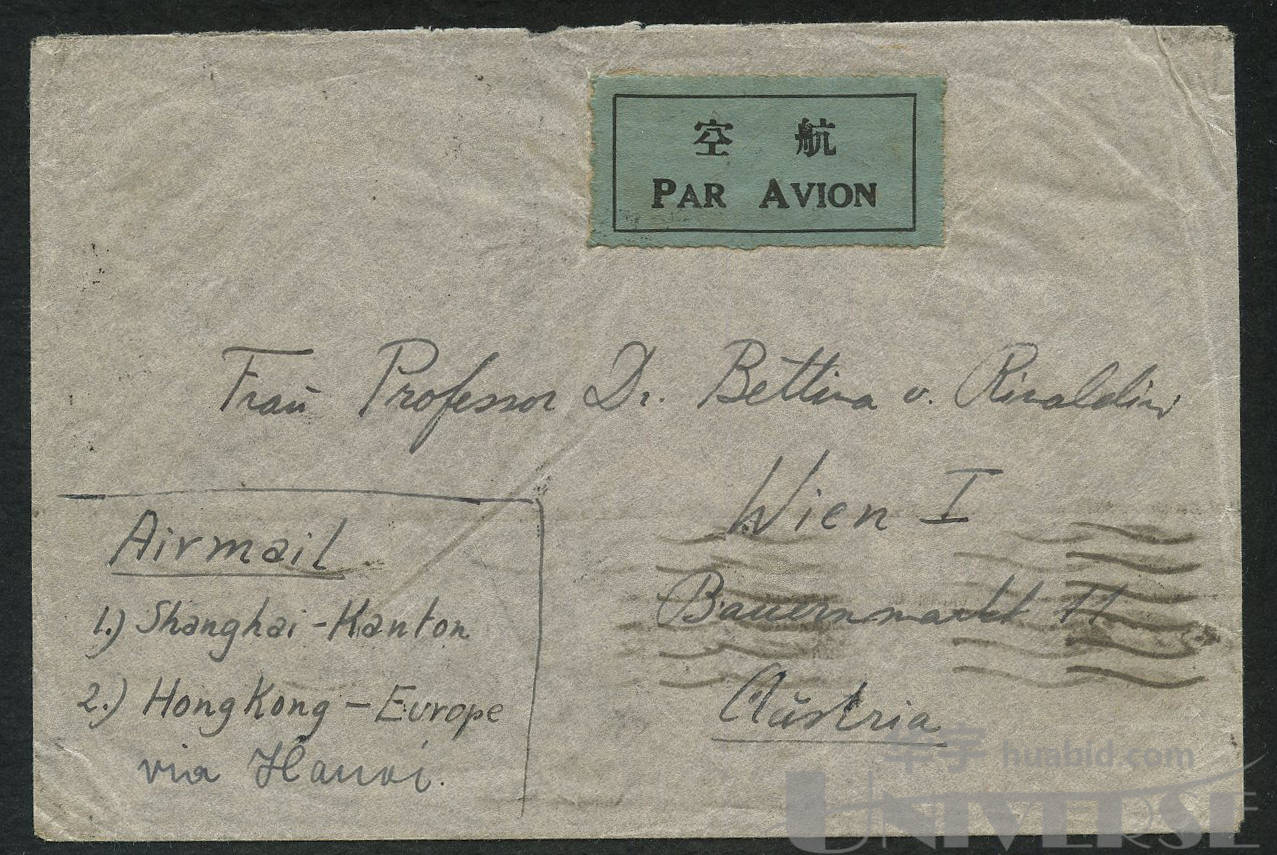 空 航
PAR AVION
Frau Professor Dr. Bettina v. Rinaldini
Wien I
Bauernmarkt 11
Austria
Airmail
1.) Shanghai - Kanton
2.) Hong Kong - Europe
via Hanoi.
华宇 huabid.com
UNIVERSE